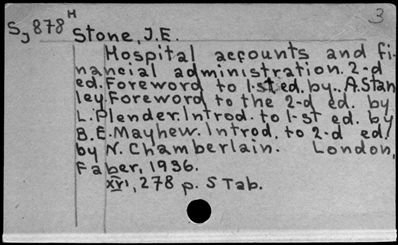 3
S,J 878 H Stone, J.E.
Hospital accounts and fi-
nancial administration. 2-d
ed. Foreword to 1-st ed. by. A.Stan
ley. Foreword to the 2-d ed. by
L. Plender. Introd. to 1-st ed. by
B.E. Mayhew. Introd. to 2-d ed.
by N. Chamberlain. London,
Faber, 1936.
XVI, 278 p. S Tab.